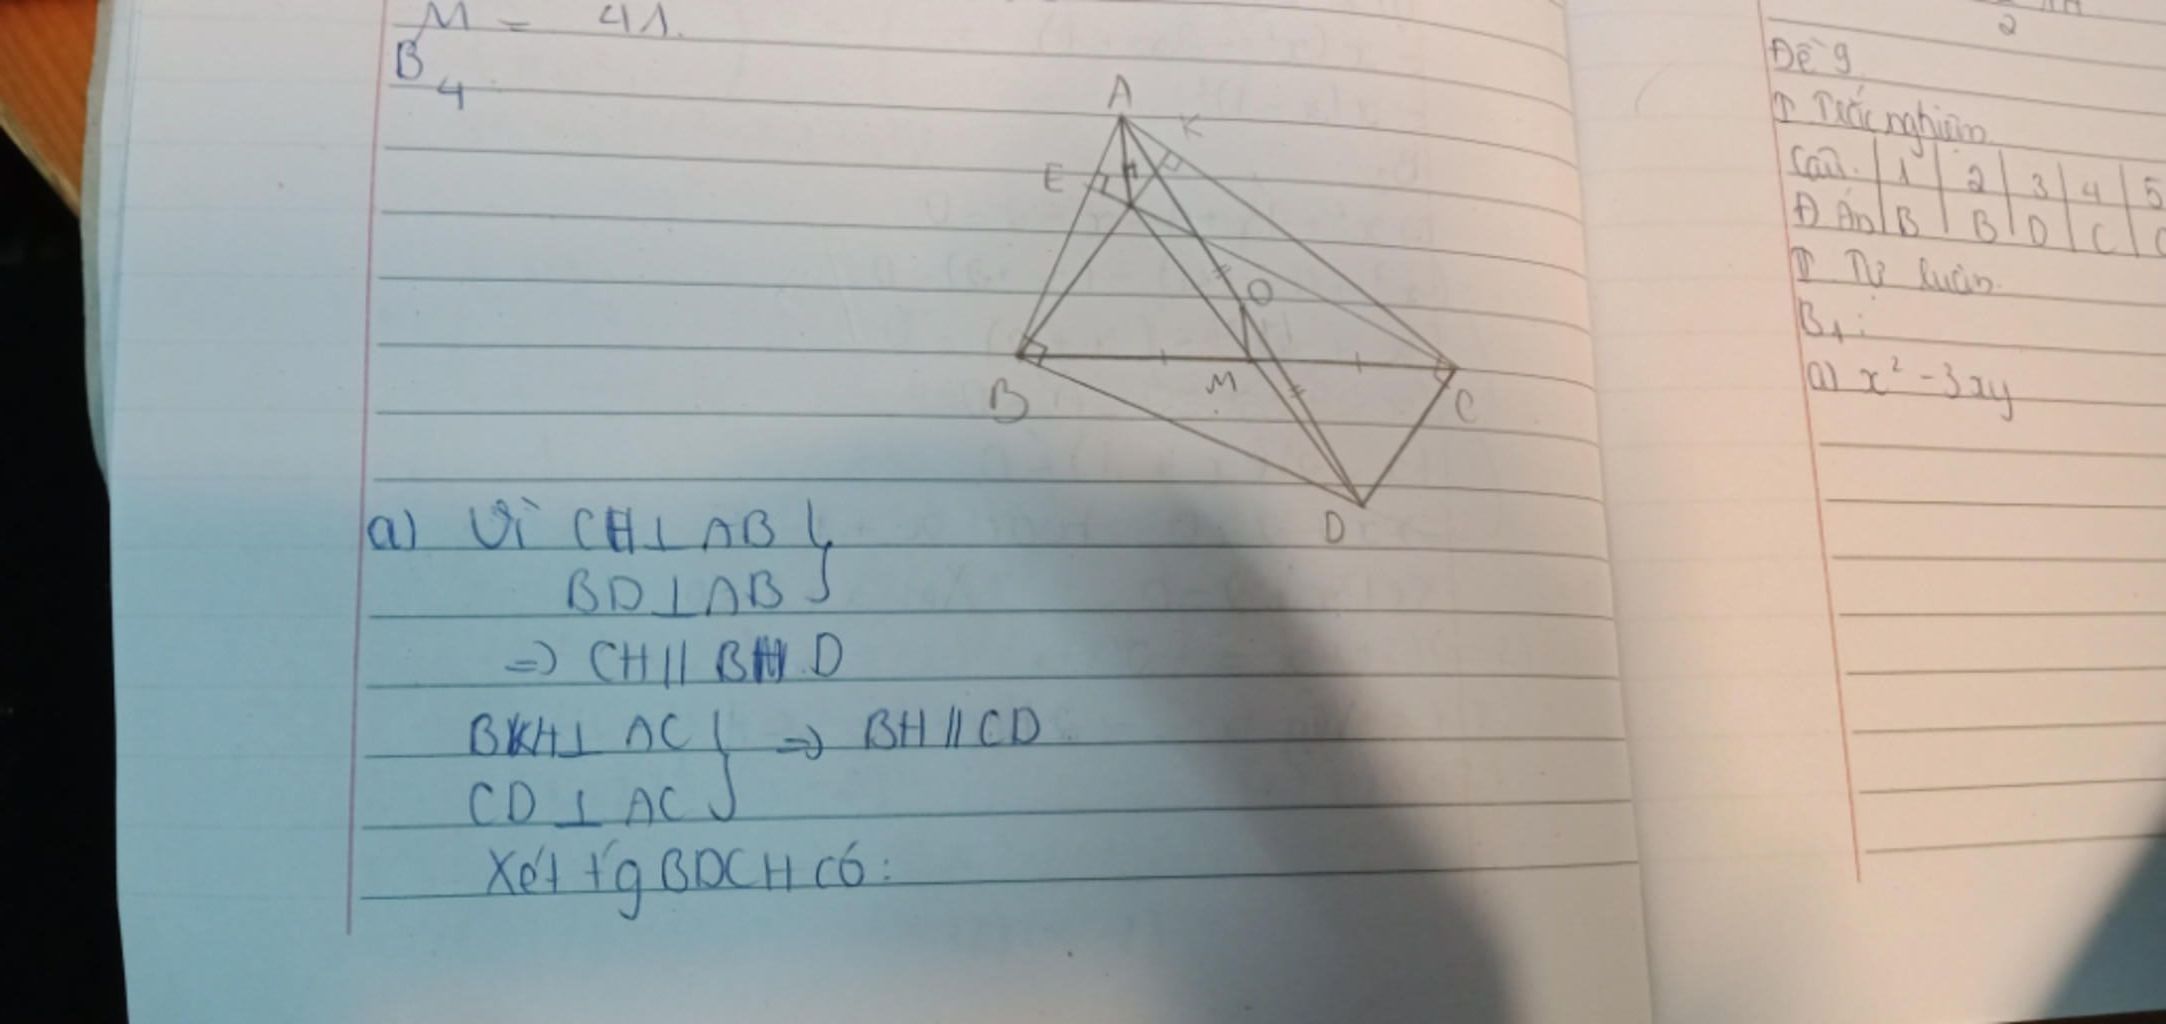 M = 41.
B4
A
K
E
H
O
B
M
C
D
a) Vì CH⊥AB
BD⊥AB
=> CH// BD
BH⊥ AC => BH // CD
CD ⊥ AC
Xét tg BDCH có:
2
Đề 9
I Trắc nghiệm
Câu 1 2 3 4 5
Đ Án B B D C
II Tự luận
B1:
a) x² - 3xy